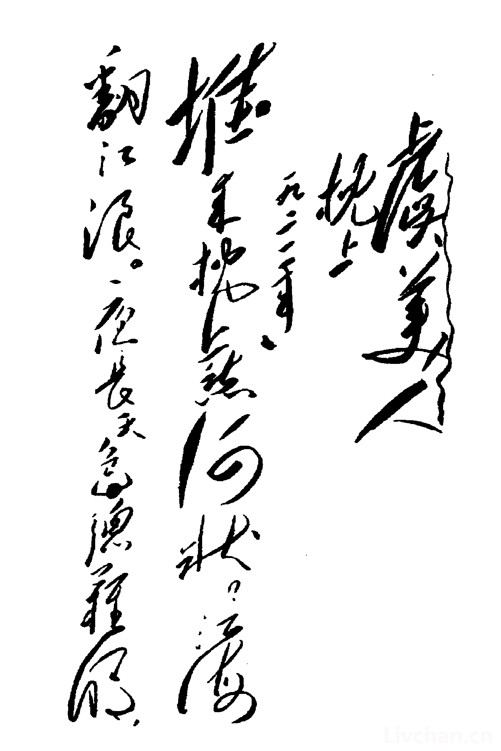 虞美人
枕上
一九二一年、
堆来枕上愁何状？江海
翻江浪。夜長天色總難明，
Livchan.cn